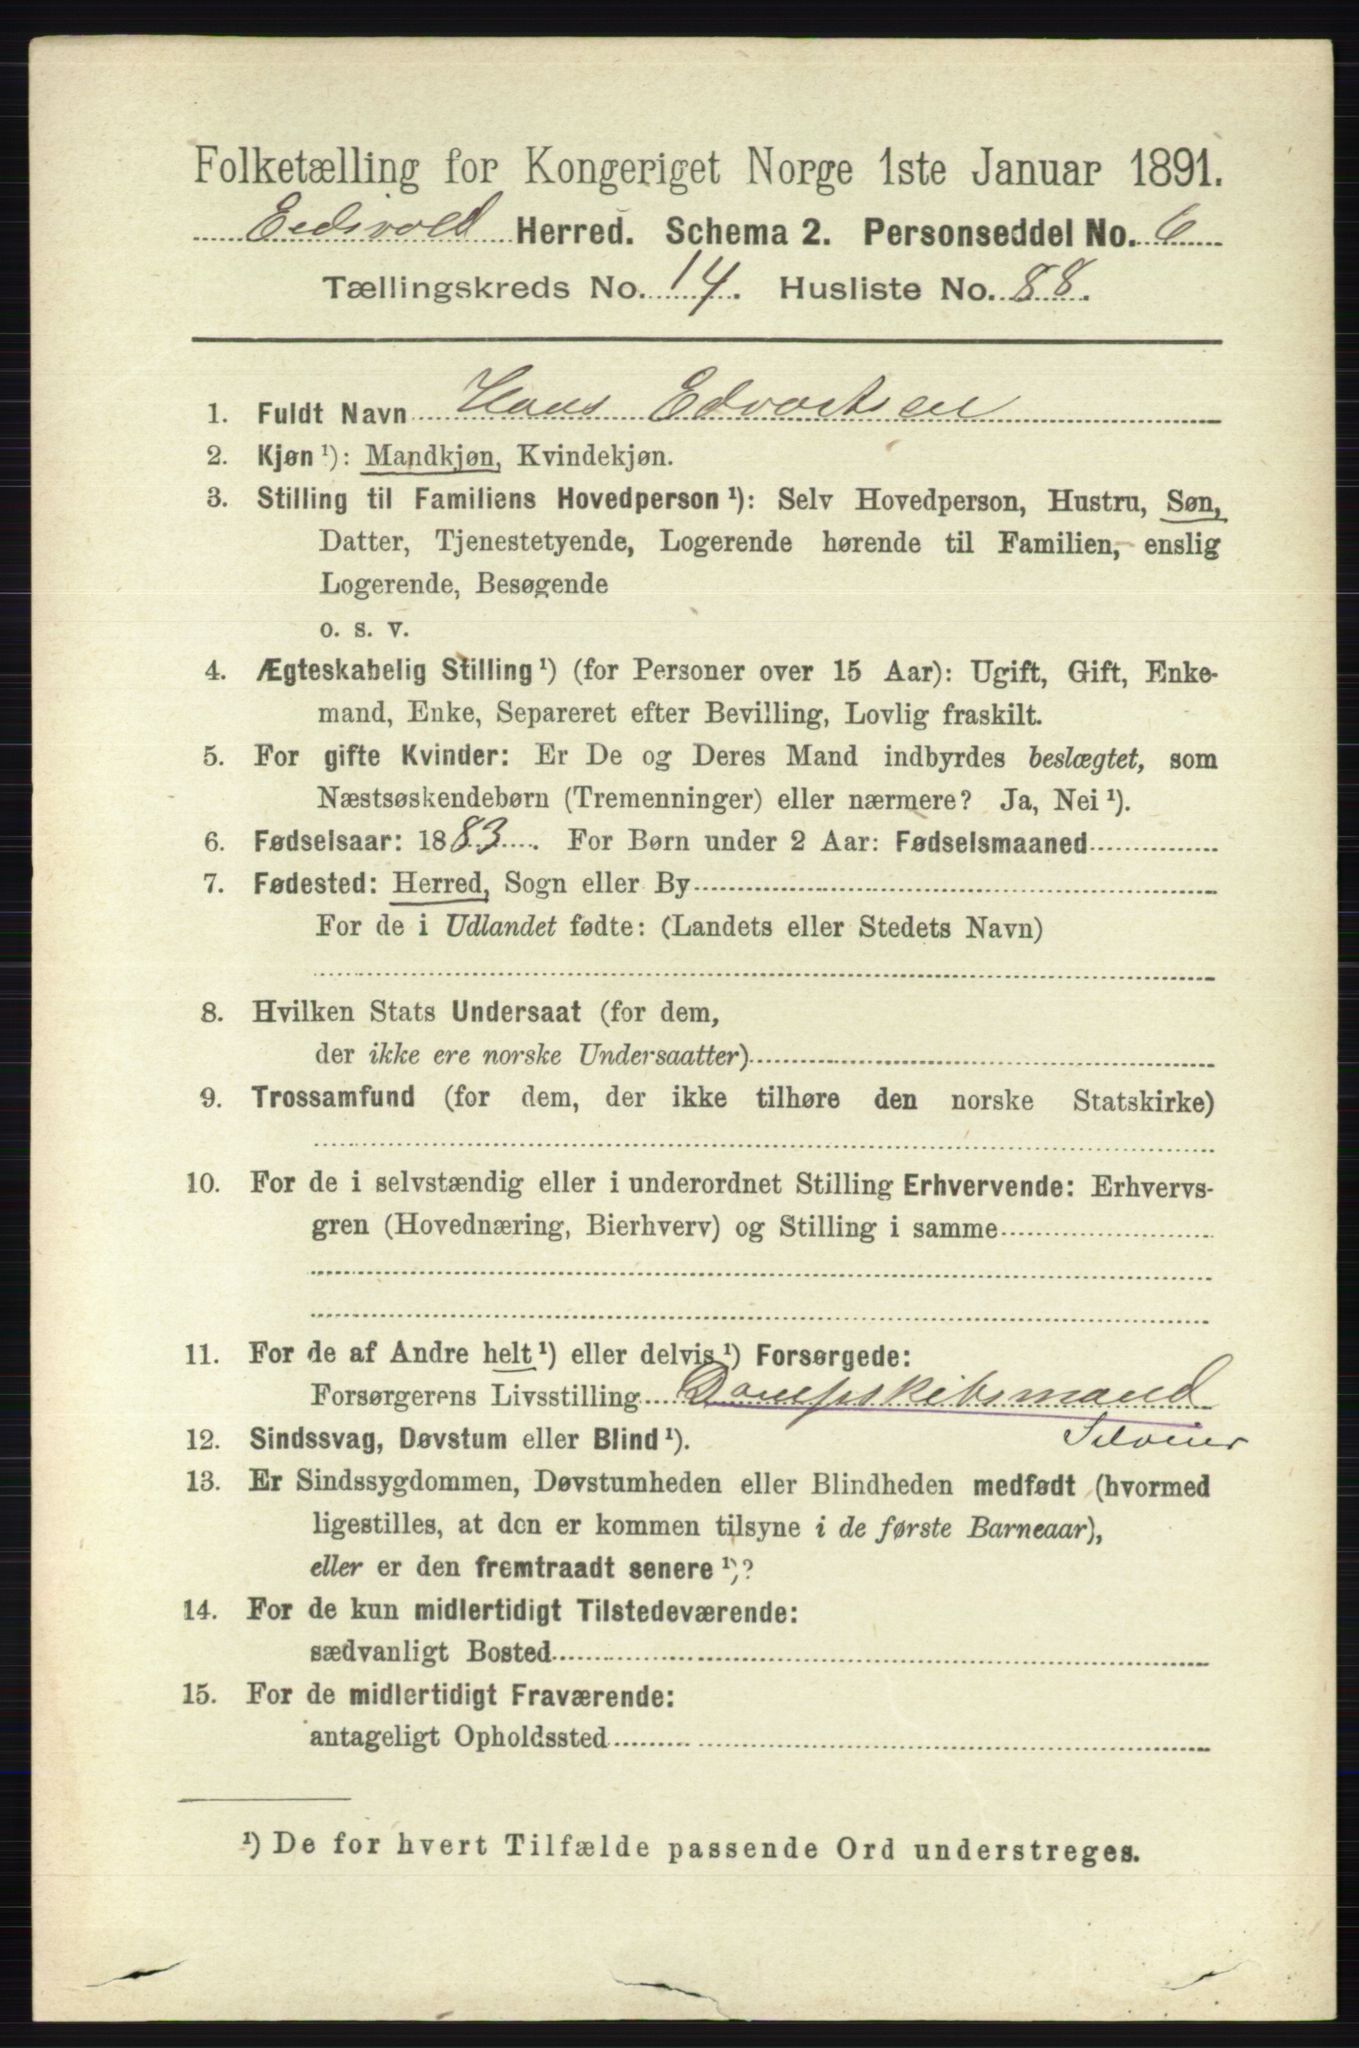 Folketælling for Kongeriget Norge 1ste Januar 1891.
Eidsvold Herred. Schema 2. Personseddel No. 6
Tællingskreds No. 14. Husliste No. 88.
1. Fuldt Navn Hans Edvartsen
2. Kjøn ¹): Mandkjøn, Kvindekjøn.
3. Stilling til Familiens Hovedperson ¹): Selv Hovedperson, Hustru, Søn,
Datter, Tjenestetyende, Logerende hørende til Familien, enslig
Logerende, Besøgende
o. s. v.
4. Ægteskabelig Stilling ¹) (for Personer over 15 Aar): Ugift, Gift, Enke-
mand, Enke, Separeret efter Bevilling, Lovlig fraskilt.
5. For gifte Kvinder: Er De og Deres Mand indbyrdes beslægtet, som
Næstsøskendebørn (Tremenninger) eller nærmere? Ja, Nei ¹).
6. Fødselsaar: 1883. For Børn under 2 Aar: Fødselsmaaned
7. Fødested: Herred, Sogn eller By
For de i Udlandet fødte: (Landets eller Stedets Navn)
8. Hvilken Stats Undersaat (for dem,
der ikke ere norske Undersaatter)
9. Trossamfund (for dem, der ikke tilhøre den norske Statskirke)
10. For de i selvstændig eller i underordnet Stilling Erhvervende: Erhvervs-
gren (Hovednæring, Bierhverv) og Stilling i samme
11. For de af Andre helt ¹) eller delvis ¹) Forsørgede:
Forsørgerens Livsstilling Dampskibsmand
12. Sindssvag, Døvstum eller Blind ¹).
13. Er Sindssygdommen, Døvstumheden eller Blindheden medfødt (hvormed
ligestilles, at den er kommen tilsyne i de første Barneaar),
eller er den fremtraadt senere ¹)?
14. For de kun midlertidigt Tilstedeværende:
sædvanligt Bosted
15. For de midlertidigt Fraværende:
antageligt Opholdssted
¹) De for hvert Tilfælde passende Ord understreges.